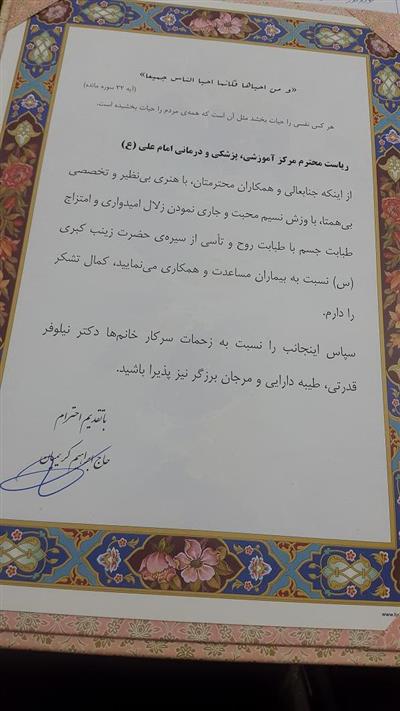 «و من احیاها فکانما احیا الناس جمیعا»
(آیه ۳۲ سوره مائده)
هر کس نفسی را حیات بخشد مثل آن است که همه‌ی مردم را حیات بخشیده است.
ریاست محترم مرکز آموزشی، پزشکی و درمانی امام علی (ع)
از اینکه جنابعالی و همکاران محترمتان، با هنری بی‌نظیر و تخصصی
بی‌همتا، با وزش نسیم محبت و جاری نمودن زلال امیدواری و امتزاج
طبابت جسم با طبابت روح و تأسی از سیره‌ی حضرت زینب کبری
(س) نسبت به بیماران مساعدت و همکاری می‌نمایید، کمال تشکر
را دارم.
سپاس اینجانب را نسبت به زحمات سرکار خانم‌ها دکتر نیلوفر
قدرتی، طیبه دارایی و مرجان برزگر نیز پذیرا باشید.
با تقدیم احترام
حاج ابراهیم کریمیان